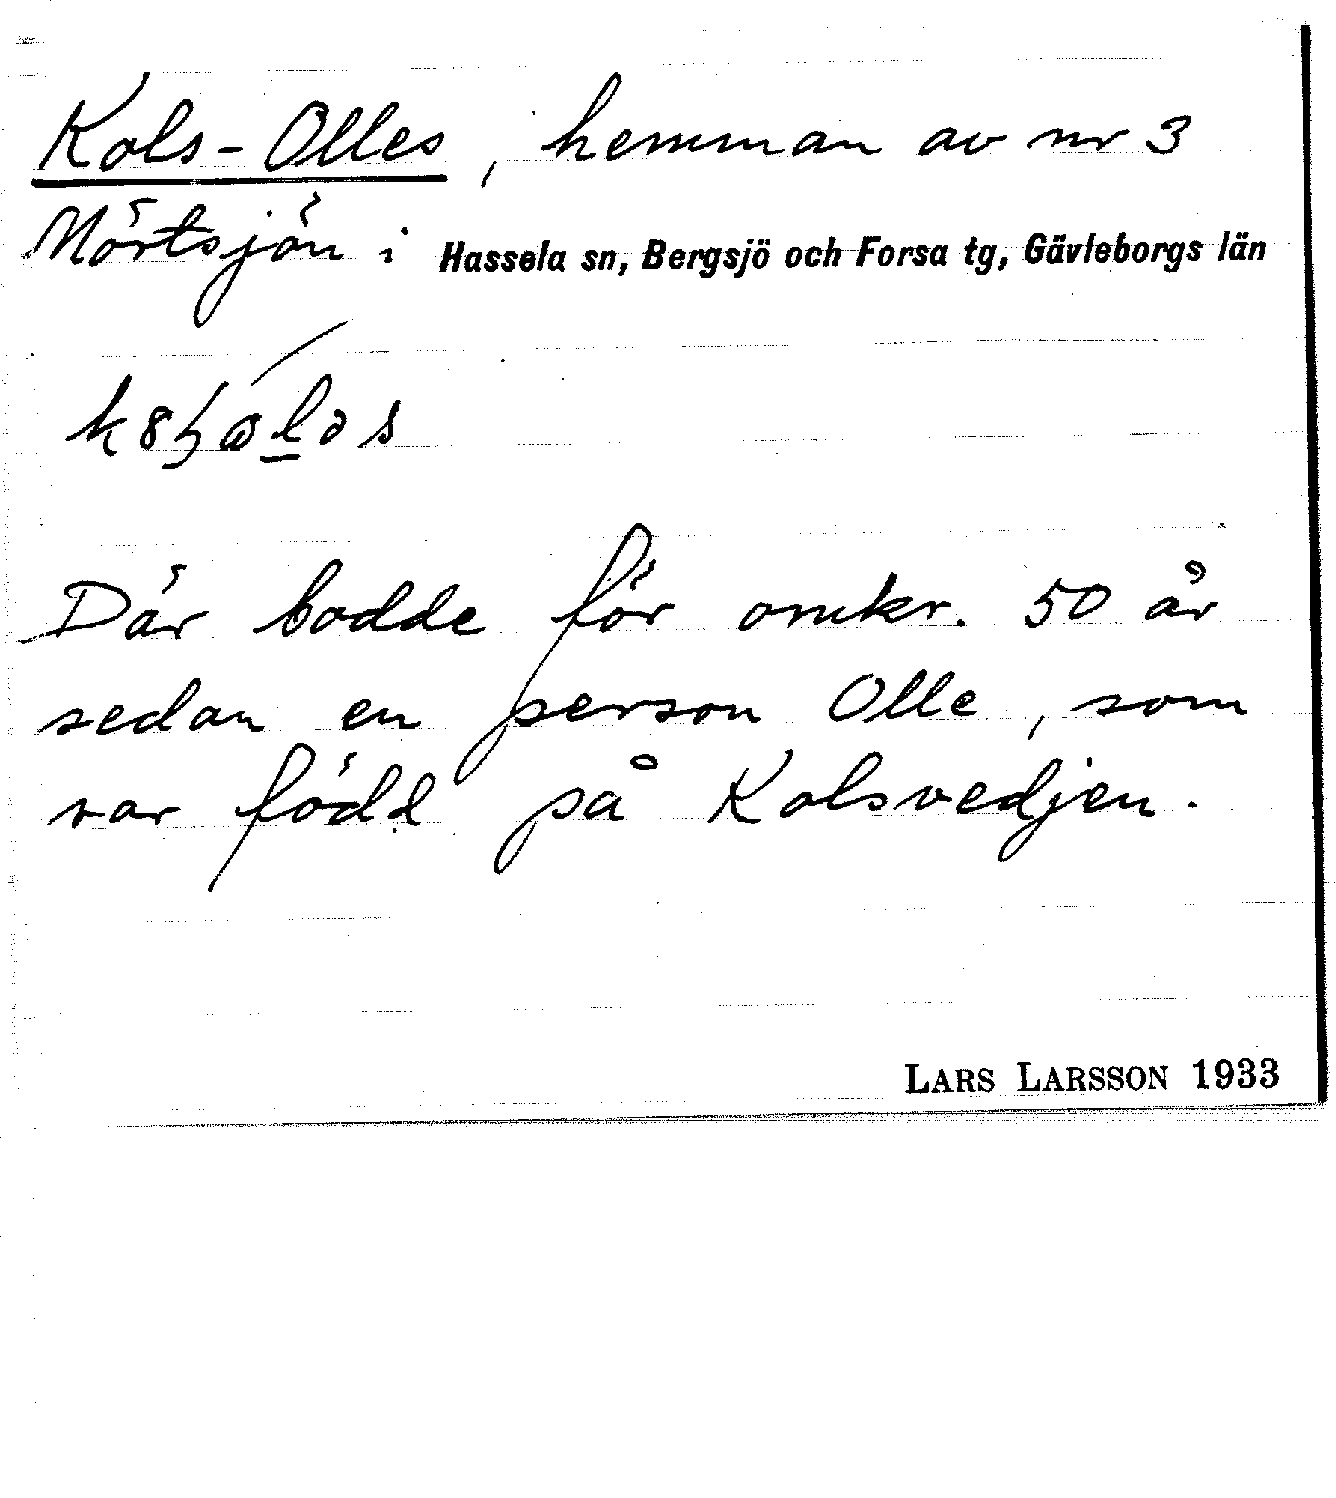 Kols-Olles, hemman av nr 3
Mörtsjön i Hassela sn, Bergsjö och Forsa tg, Gävleborgs län
Där bodde för omkr. 50 år
sedan en person Olle, som
var född på Kolsvedjen.
LARS LARSSON 1933